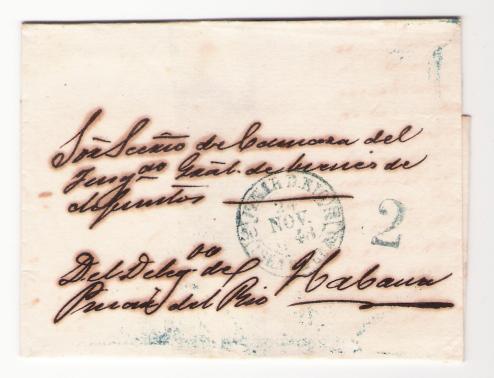 Sōr Scrio de Camara del
Juzgdo Gral. de bienes de
difuntos
NOV.
2
Del Delegdo de
Pinar del Rio
Habana